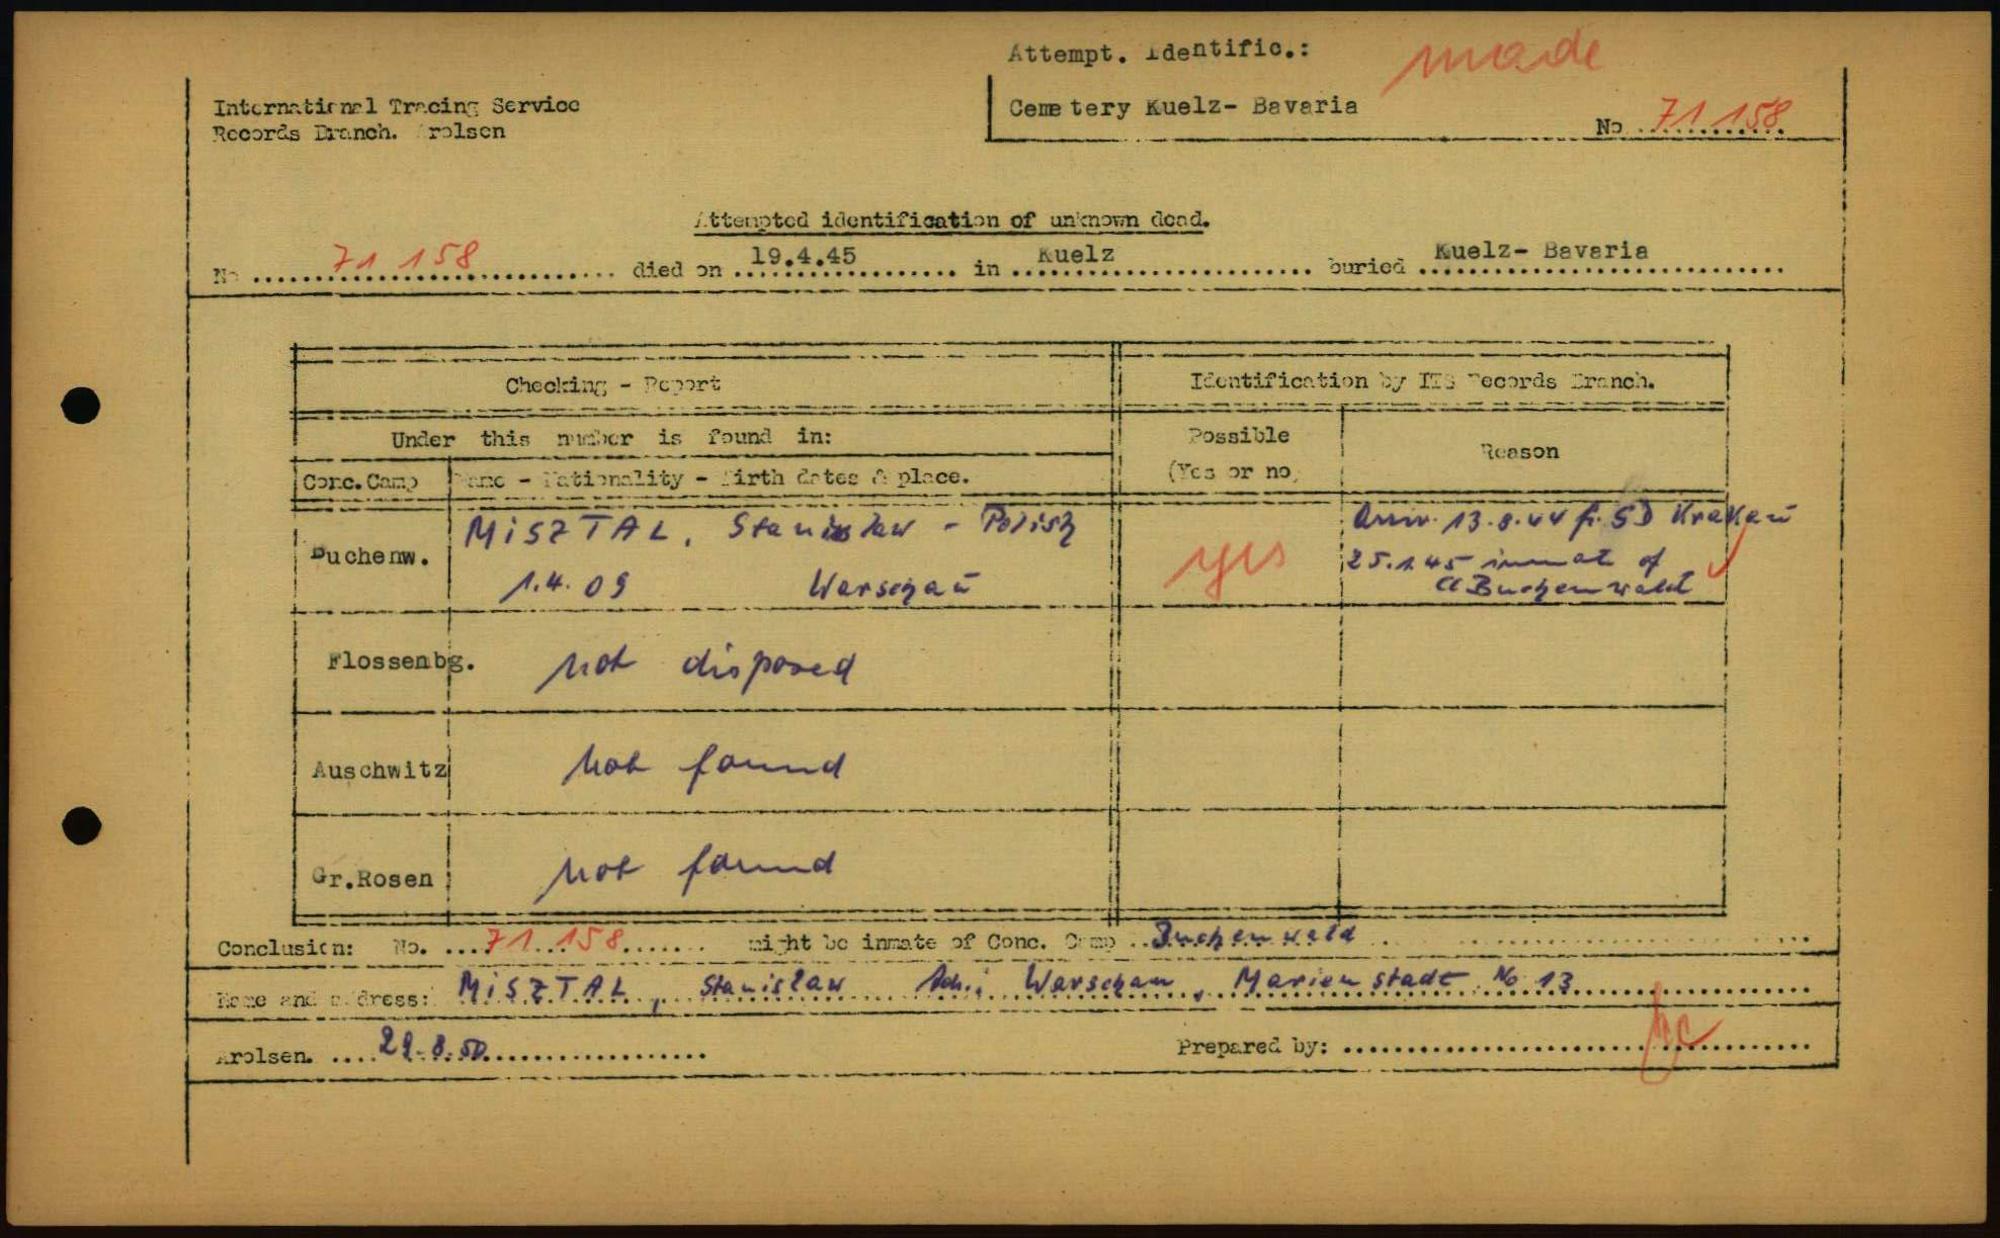 Attempt. Identific.: made
International Tracing Service
Records Branch. Arolsen
Cemetery Kuelz- Bavaria
No 71 158
Attempted identification of unknown dead.
No 71 158 died on 19.4.45 in Kuelz buried Kuelz- Bavaria
Checking - Report
Identification by ITS Records Branch.
Under this number is found in:
Possible
(Yes or no)
Reason
Conc.Camp
Name - Nationality - Birth dates & place.
Buchenw.
MISZTAL, Stanislaw - Polish
1.4.09 Warschau
yes
Arriv. 13.8.44 fr. SD Krakau
25.1.45 inmate of
Cl Buchenwald
Flossenbg. not disposed
Auschwitz not found
Gr.Rosen not found
Conclusion: No. 71 158 might be inmate of Conc. Camp Buchenwald
Name and address: MISZTAL, Stanislaw Adr.: Warschau, Marienstadt No 13
Arolsen. 29.8.50 Prepared by: